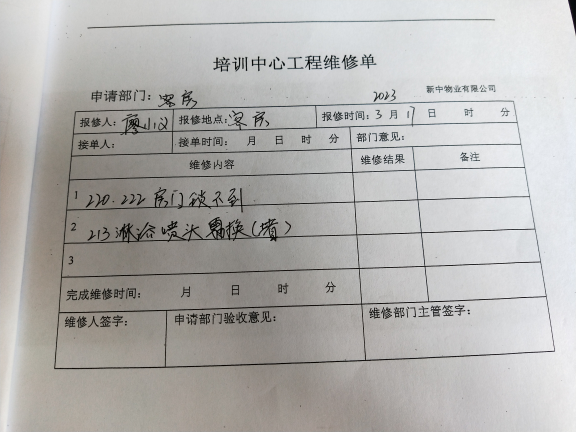 培训中心工程维修单
申请部门：客房 2023 新中物业有限公司
报修人：廖小义 报修地点：客房 报修时间：3月17日 时 分
接单人： 接单时间： 月 日 时 分 部门意见：
维修内容 维修结果 备注
1 220.222房门锁不到
2 213淋浴喷头需换（堵）
3
完成维修时间： 月 日 时 分
维修人签字： 申请部门验收意见： 维修部门主管签字：